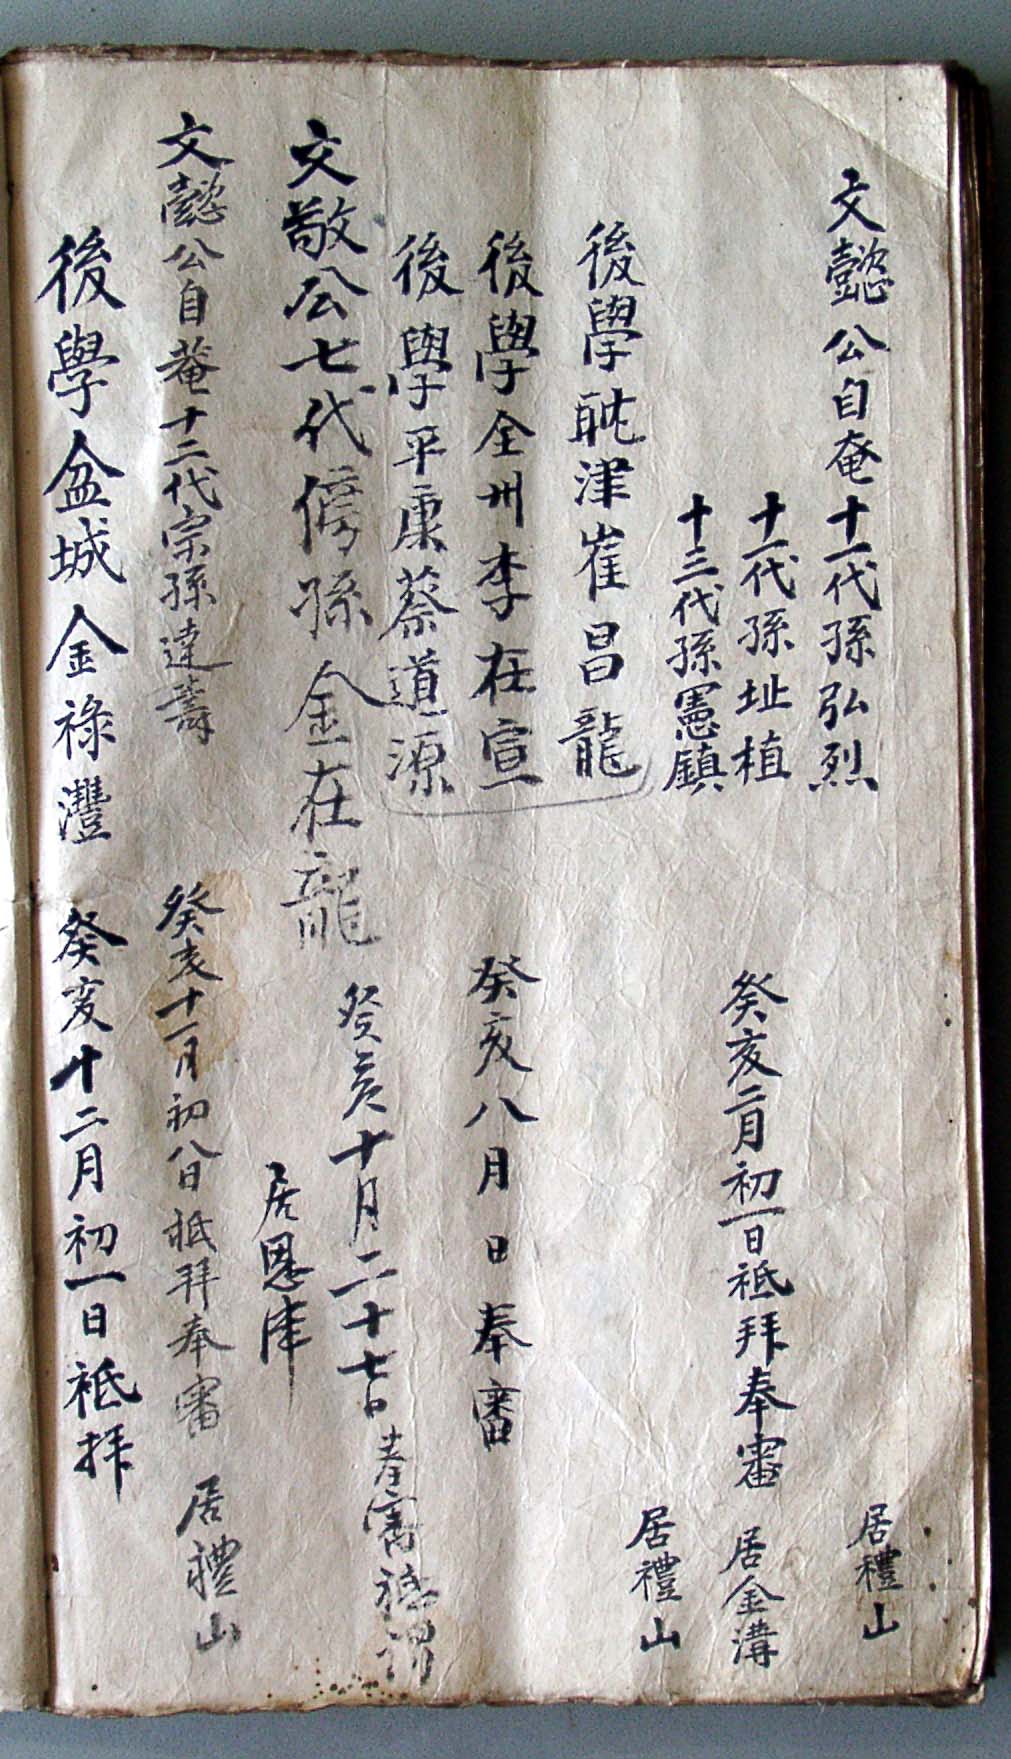 文懿公自菴十一代孫弘烈 居禮山
十一代孫址植 癸亥二月初一日祗拜奉審 居金溝
十三代孫憲鎮 居禮山
後學耽津崔昌龍
後學全州李在宣 癸亥八月日奉審
後學平康蔡道源
文敬公七代傍孫金在龍 癸亥十月二十七日奉審祗謁
居恩津
文懿公自菴十二代宗孫達壽 癸亥十一月初八日祗拜奉審 居禮山
後學盆城金祿灃 癸亥十二月初一日祗拜